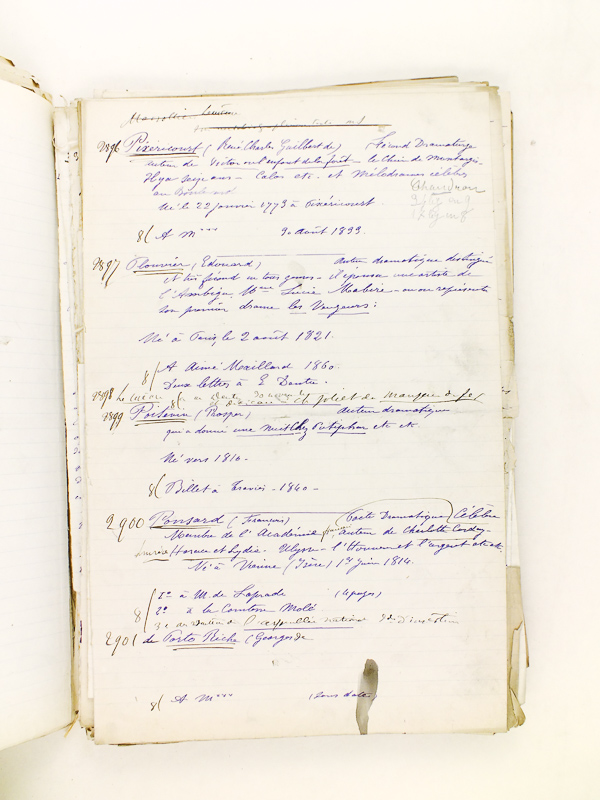 2896 Pixéricourt (René Charles Guilbert de) Fécond Dramaturge
auteur de Victor ou l'enfant de la forêt - le Chien de Montargis
Il y a seize ans - etc - et Mélodrames célèbres
au Boulevard
Né le 22 janvier 1773 à Pixéricourt
8( A M*** 9 août 1833.
2897 Plouvier (Edouard) auteur dramatique distingué
et très fécond en tous genres - Il épousa une artiste de
l'Ambigu Mme Lucie Mabire - on a représenté
son premier drame les Vengeurs:
Né à Paris, le 2 août 1821.
8( A Aimé Maillard 1860.
Deux lettres à E Dentu.
2898
2899 Potevin (Prosper) auteur dramatique
qui a donné une nuit chez Putiphar etc etc
Né vers 1810-
8( Billet à Travies - 1840 -
2900 Ponsard (François) Poète Dramatique Célèbre
Membre de l'Académie auteur de Charlotte Corday-
Lucrèce Horace et Lydie - Ulysse - l'Honneur et l'argent etc etc.
Né à Vienne (Isère) 1er juin 1814.
8( 1° à M. de Laprade (4 pages)
2° à la Comtesse Molé
3°
2901 de Porto Riche (Georges de
8( A M*** (sans date)